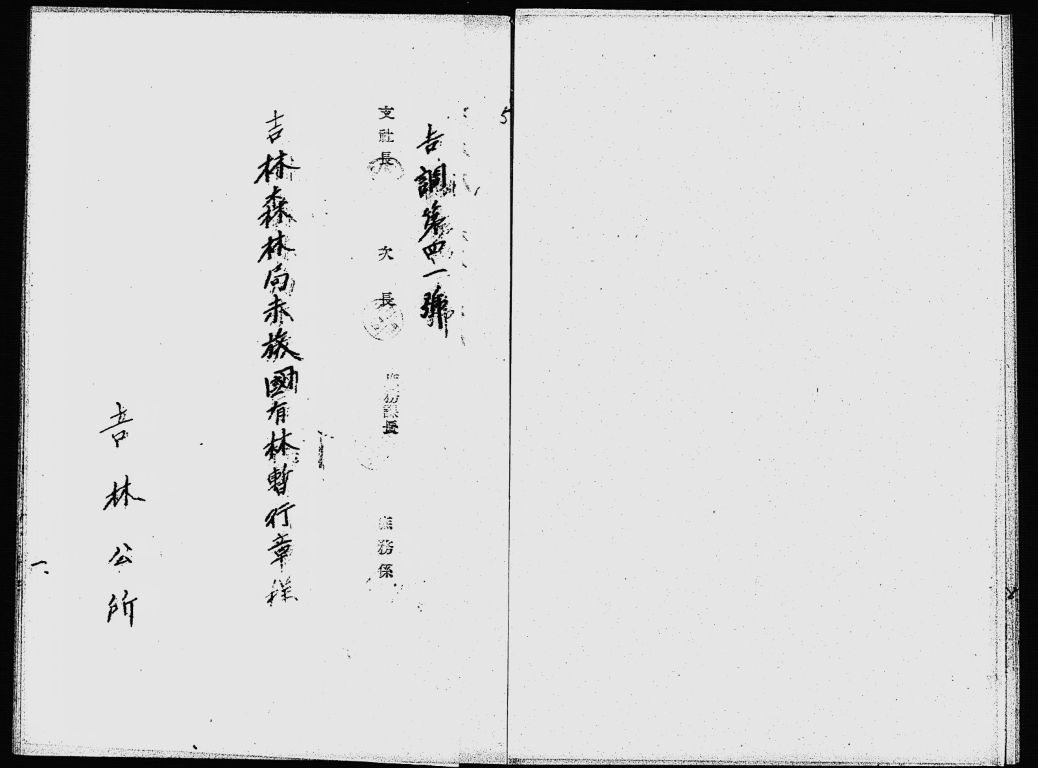 5
吉調第四一號
支社長 次長 庶務課長 庶務係
吉林森林局國有林暫行章程
吉林公所
一